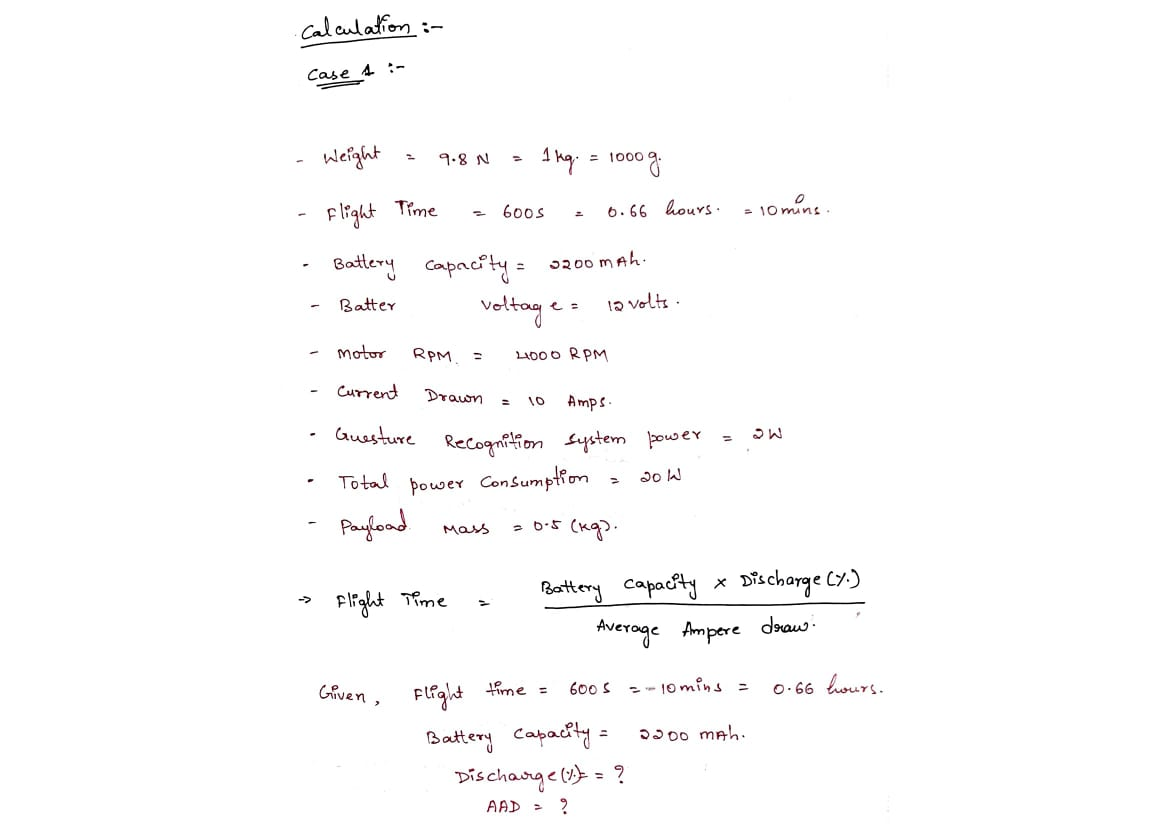 Calculation :-
Case 1 :-
- Weight = 9.8 N = 1 kg. = 1000 g.
- Flight Time = 600s = 0.66 hours. = 10 mins.
- Battery Capacity = 2200 mAh.
- Batter Voltage = 12 volts.
- Motor RPM. = 4000 RPM
- Current Drawn = 10 Amps.
- Guesture Recognition System power = 2W
- Total power Consumption = 20 W
- Payload Mass = 0.5 (kg).
→ Flight Time = Battery Capacity × Discharge (%)
Average Ampere draw.
Given, Flight time = 600 s = - 10 mins = 0.66 hours.
Battery Capacity = 2200 mAh.
Discharge (%) = ?
AAD = ?